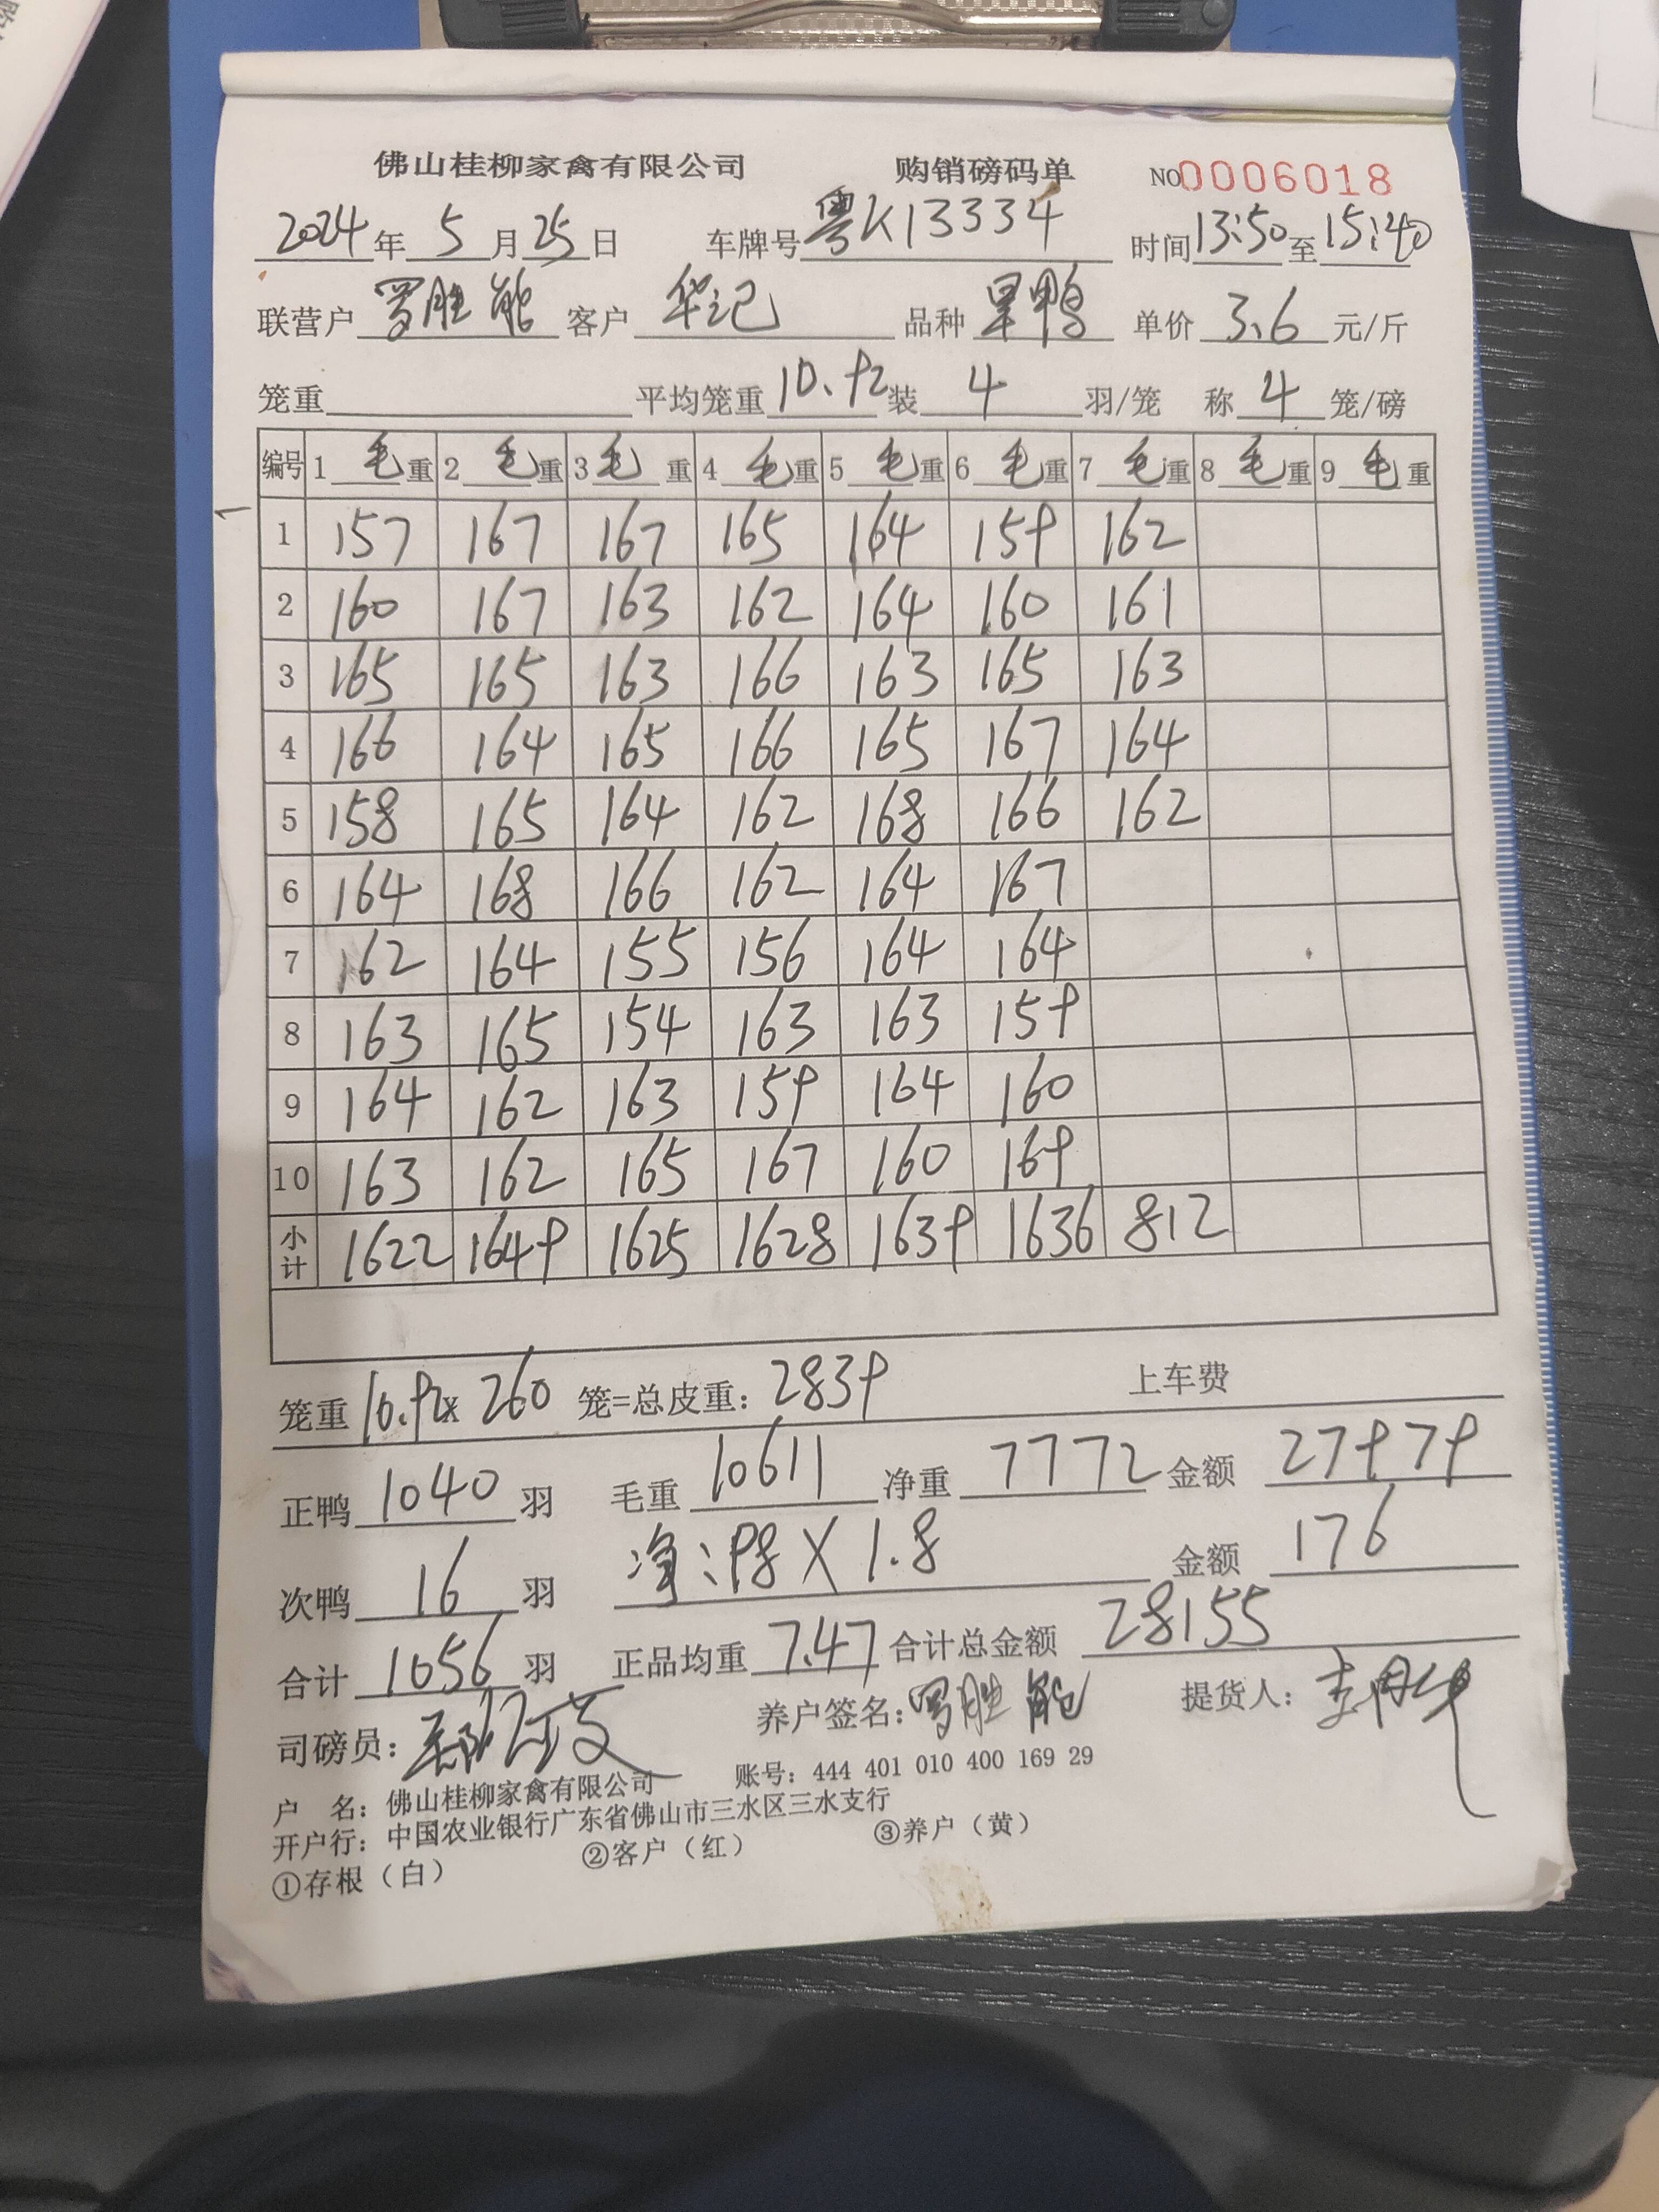 佛山桂柳家禽有限公司 购销磅码单 NO0006018
2024年5月25日 车牌号粤K13334 时间13:50至15:40
联营户 罗胜能 客户 华记 品种 旱鸭 单价 3.6 元/斤
笼重 平均笼重10.92装 4 羽/笼 称 4 笼/磅
编号 1 毛重 2 毛重 3 毛重 4 毛重 5 毛重 6 毛重 7 毛重 8 毛重 9 毛重
1 157 167 167 165 164 159 162
2 160 167 163 162 164 160 161
3 165 165 163 166 163 165 163
4 166 164 165 166 165 167 164
5 158 165 164 162 168 166 162
6 164 168 166 162 164 167
7 162 164 155 156 164 164
8 163 165 154 163 163 159
9 164 162 163 159 164 160
10 163 162 165 167 160 169
小计 1622 1649 1625 1628 1639 1636 812
笼重 10.92x 260 笼=总皮重: 2839 上车费
正鸭 1040 羽 毛重 10611 净重 7772 金额 27979
次鸭 16 羽 净:98X1.8 金额 176
合计 1056 羽 正品均重 7.47 合计总金额 28155
司磅员: 养户签名:罗胜能 提货人:
户 名: 佛山桂柳家禽有限公司 账号: 444 401 010 400 169 29
开户行: 中国农业银行广东省佛山市三水区三水支行
①存根（白） ②客户（红） ③养户（黄）